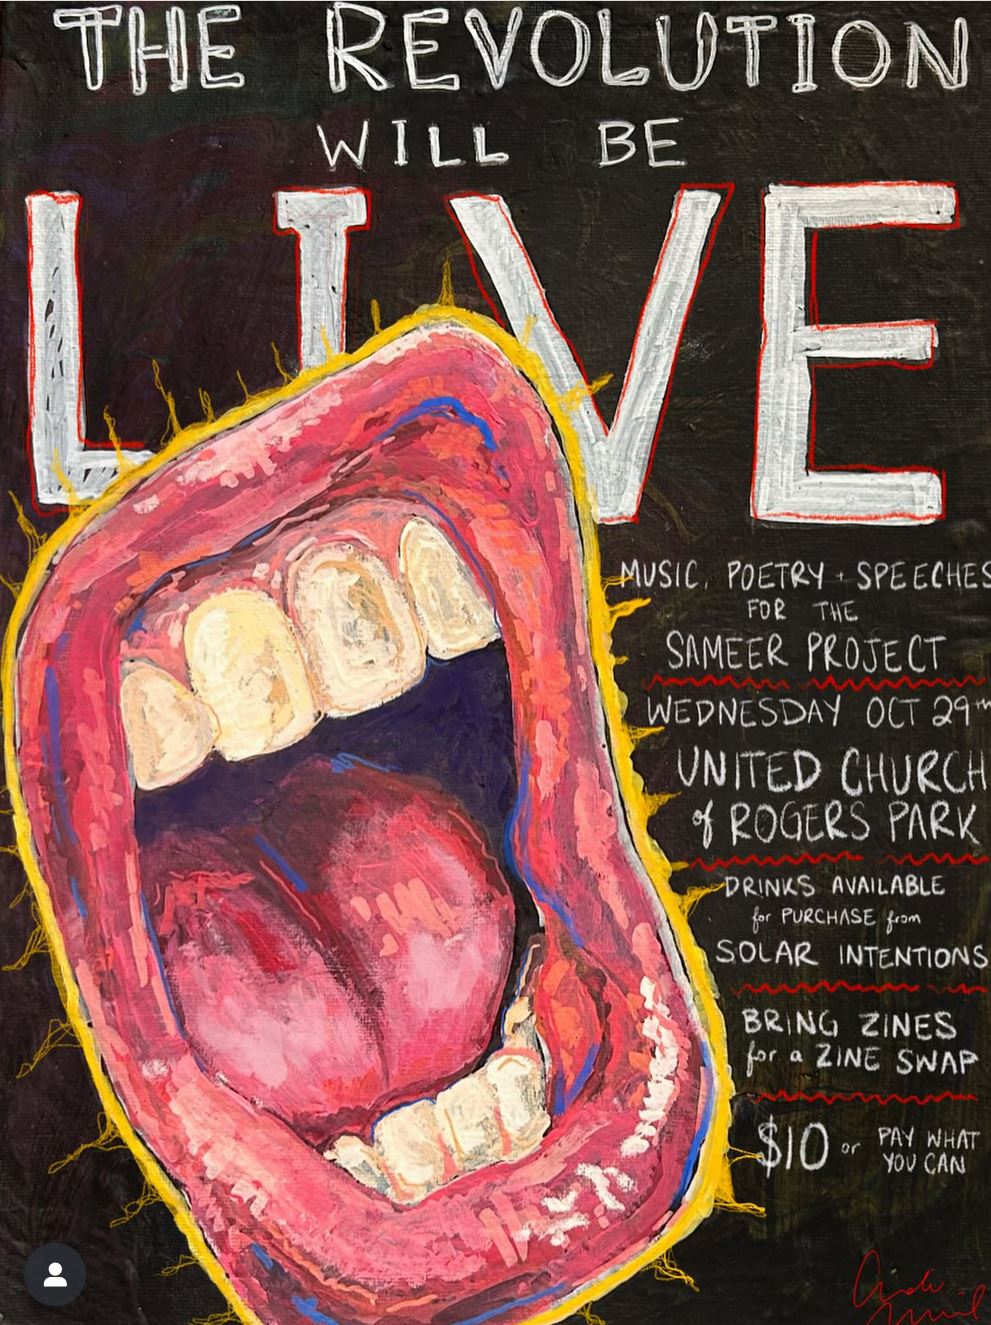 THE REVOLUTION
WILL BE
LIVE
MUSIC, POETRY + SPEECHES
FOR THE
SAMEER PROJECT
WEDNESDAY OCT 29TH
UNITED CHURCH
of ROGERS PARK
DRINKS AVAILABLE
for PURCHASE from
SOLAR INTENTIONS
BRING ZINES
for a ZINE SWAP
$10 or PAY WHAT
YOU CAN